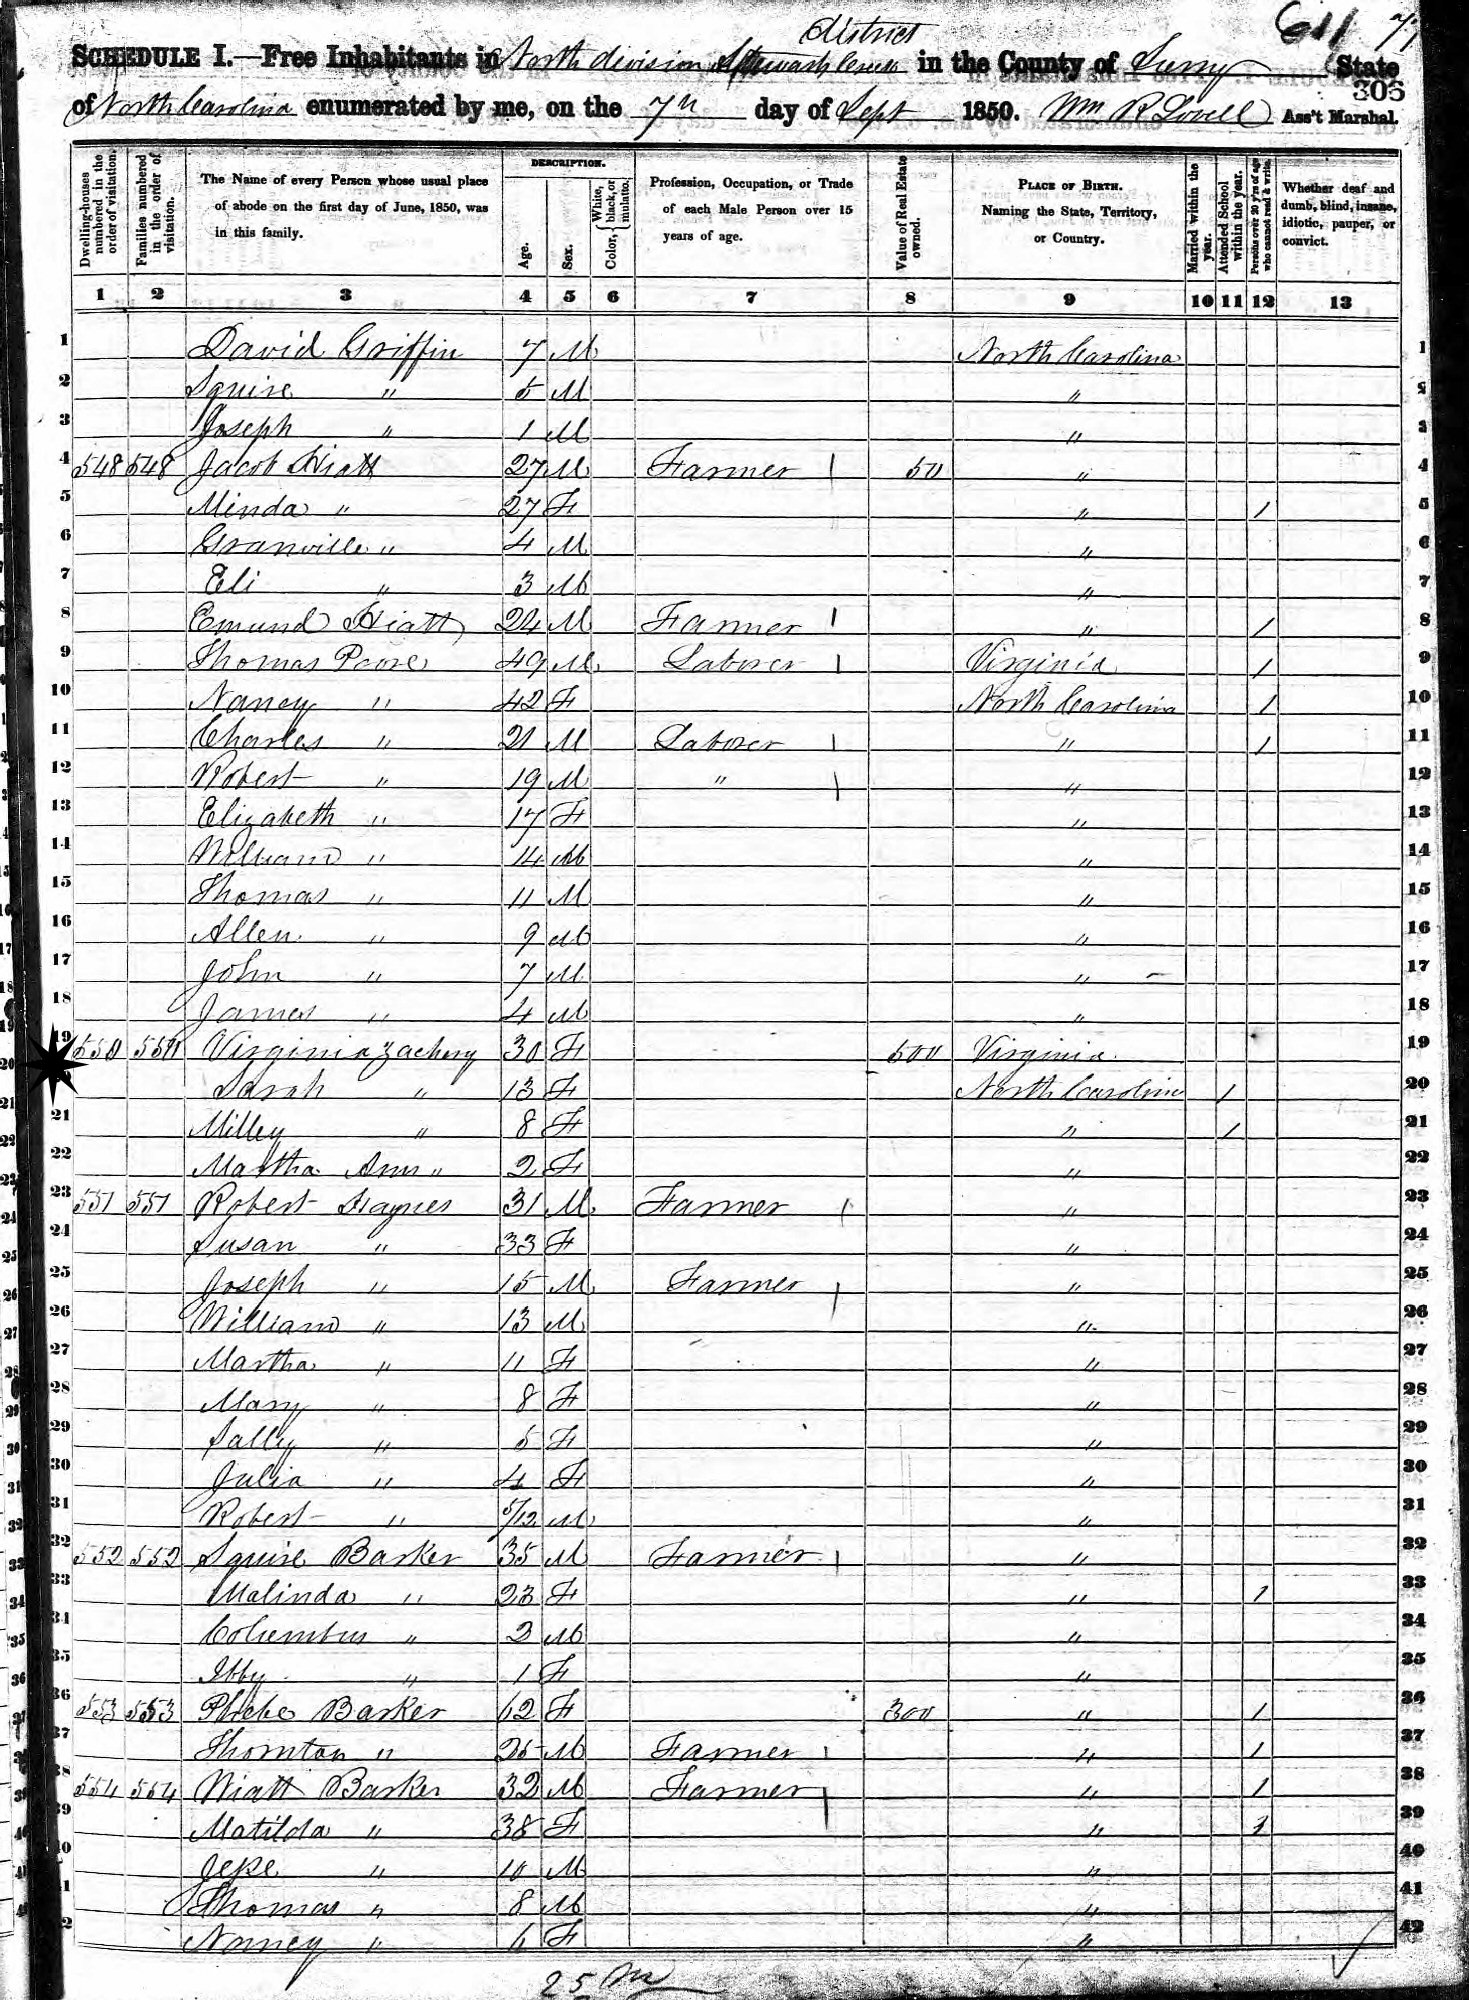 611 77
district
SCHEDULE I.—Free Inhabitants in North division in the County of Surry State
303
of North Carolina enumerated by me, on the 7th day of Sept 1850. Wm R Lovell Ass't Marshal.
Dwelling-houses numbered in the order of visitation.
Families numbered in the order of visitation.
The Name of every Person whose usual place of abode on the first day of June, 1850, was in this family.
DESCRIPTION.
Age.
Sex.
Color, { White, black, or mulatto.
Profession, Occupation, or Trade of each Male Person over 15 years of age.
Value of Real Estate owned.
PLACE OF BIRTH. Naming the State, Territory, or Country.
Married within the year.
Attended School within the year.
Persons over 20 y'rs of age who cannot read & write.
Whether deaf and dumb, blind, insane, idiotic, pauper, or convict.
1 2 3 4 5 6 7 8 9 10 11 12 13
1 David Griffin 7 M North Carolina 1
2 Squire " 5 M " 2
3 Joseph " 1 M " 3
4 548 548 Jacob Hiatt 27 M Farmer 1 50 " 4
5 Minda " 27 F " 1 5
6 Granville " 4 M " 6
7 Eli " 3 M " 7
8 Emund Hiatt 24 M Farmer 1 " 1 8
9 Thomas Poore 49 M Laborer 1 Virginia 1 9
10 Nancy " 42 F North Carolina 1 10
11 Charles " 21 M Laborer 1 " 1 11
12 Robert " 19 M " 1 " 12
13 Elizabeth " 17 F " 13
14 William " 14 M " 14
15 Thomas " 11 M " 15
16 Allen " 9 M " 16
17 John " 7 M " 17
18 James " 4 M " 18
19 550 550 Virginia Zachery 30 F 500 Virginia 19
Sarah " 13 F North Carolina 1 20
21 Milley " 8 F " 1 21
22 Martha Ann " 2 F " 22
23 551 551 Robert Haynes 31 M Farmer 1 " 23
24 Susan " 33 F " 24
25 Joseph " 15 M Farmer 1 " 25
26 William " 13 M " 26
27 Martha " 11 F " 27
28 Mary " 8 F " 28
29 Sally " 5 F " 29
30 Julia " 4 F " 30
31 Robert " 5/12 M " 31
32 552 552 Squire Barker 35 M Farmer 1 " 32
33 Malinda " 23 F " 1 33
34 Columbus " 2 M " 34
35 Ibby " 1 F " 35
36 553 553 Phebe Barker 62 F 300 " 1 36
37 Thornton " 25 M Farmer 1 " 1 37
38 554 554 Wiatt Barker 32 M Farmer 1 " 1 38
39 Matilda " 38 F " 1 39
40 Jesse " 10 M " 40
41 Thomas " 8 M " 41
42 Nancy " 6 F " 42
25 M